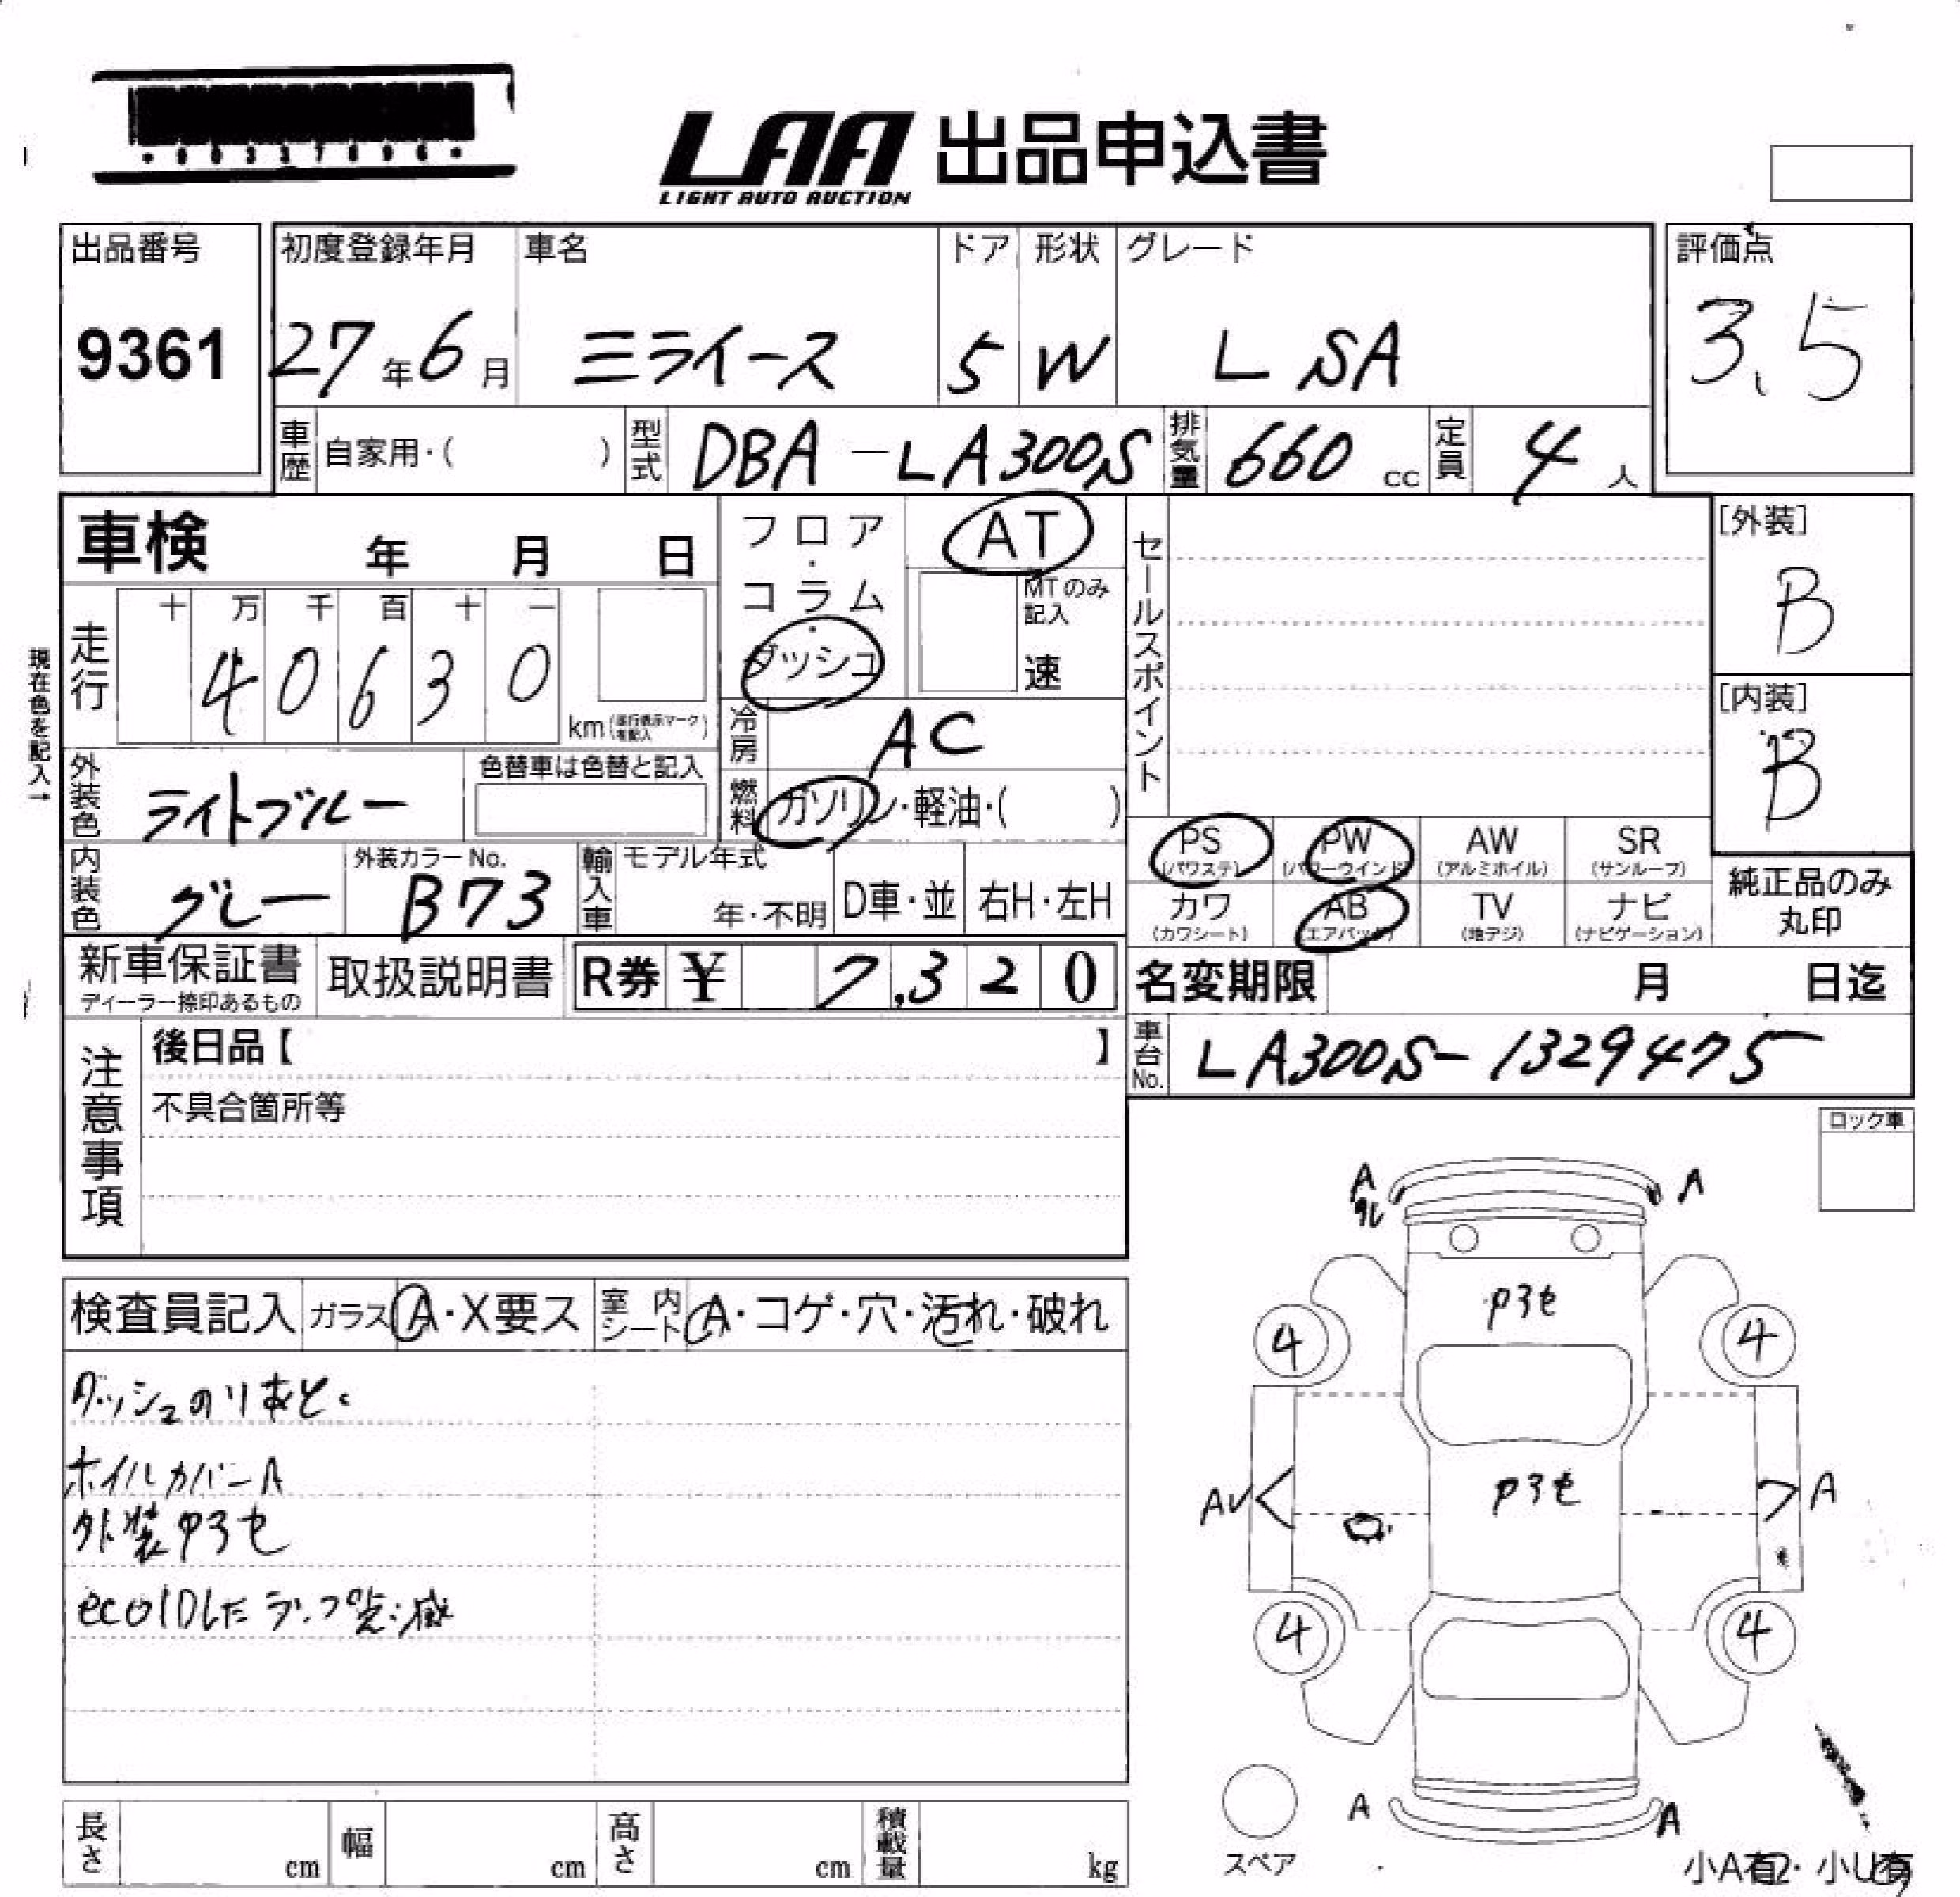 LAA 出品申込書
LIGHT AUTO AUCTION
出品番号
9361
初度登録年月
27年6月
車名
ミライース
ドア
5
形状
W
グレード
L SA
評価点
3.5
車歴 自家用・( )
型式 DBA-LA300S
排気量 660 cc
定員 4 人
車検 年 月 日
フロア・コラム・ダッシュ
AT
MTのみ記入
速
セールスポイント
[外装]
B
[内装]
B
現在色を記入→
走行
十 万 千 百 十 一
4 0 6 3 0
km (走行表示マークを記入)
冷房 AC
燃料 ガソリン・軽油・( )
外装色 ライトブルー
色替車は色替と記入
内装色 グレー
外装カラーNo.
B73
輸入車 モデル年式
年・不明
D車・並
右H・左H
PS (パワステ)
PW (パワーウインド)
AW (アルミホイル)
SR (サンルーフ)
カワ (カワシート)
AB (エアバック)
TV (地デジ)
ナビ (ナビゲーション)
純正品のみ
丸印
新車保証書
ディーラー捺印あるもの
取扱説明書
R券 ¥ 7,320
名変期限 月 日迄
車台No. LA300S-1329475
注意事項
後日品【 】
不具合箇所等
ロック車
検査員記入
ガラス A・X要ス
室内シート A・コゲ・穴・汚れ・破れ
ダッシュのりあと
ホイルカバーA
外装キズモ
ecoIDLEランプ点滅
A
A
4
4
AV
A
4
4
A
A
スペア
長さ cm
幅 cm
高さ cm
積載量 kg